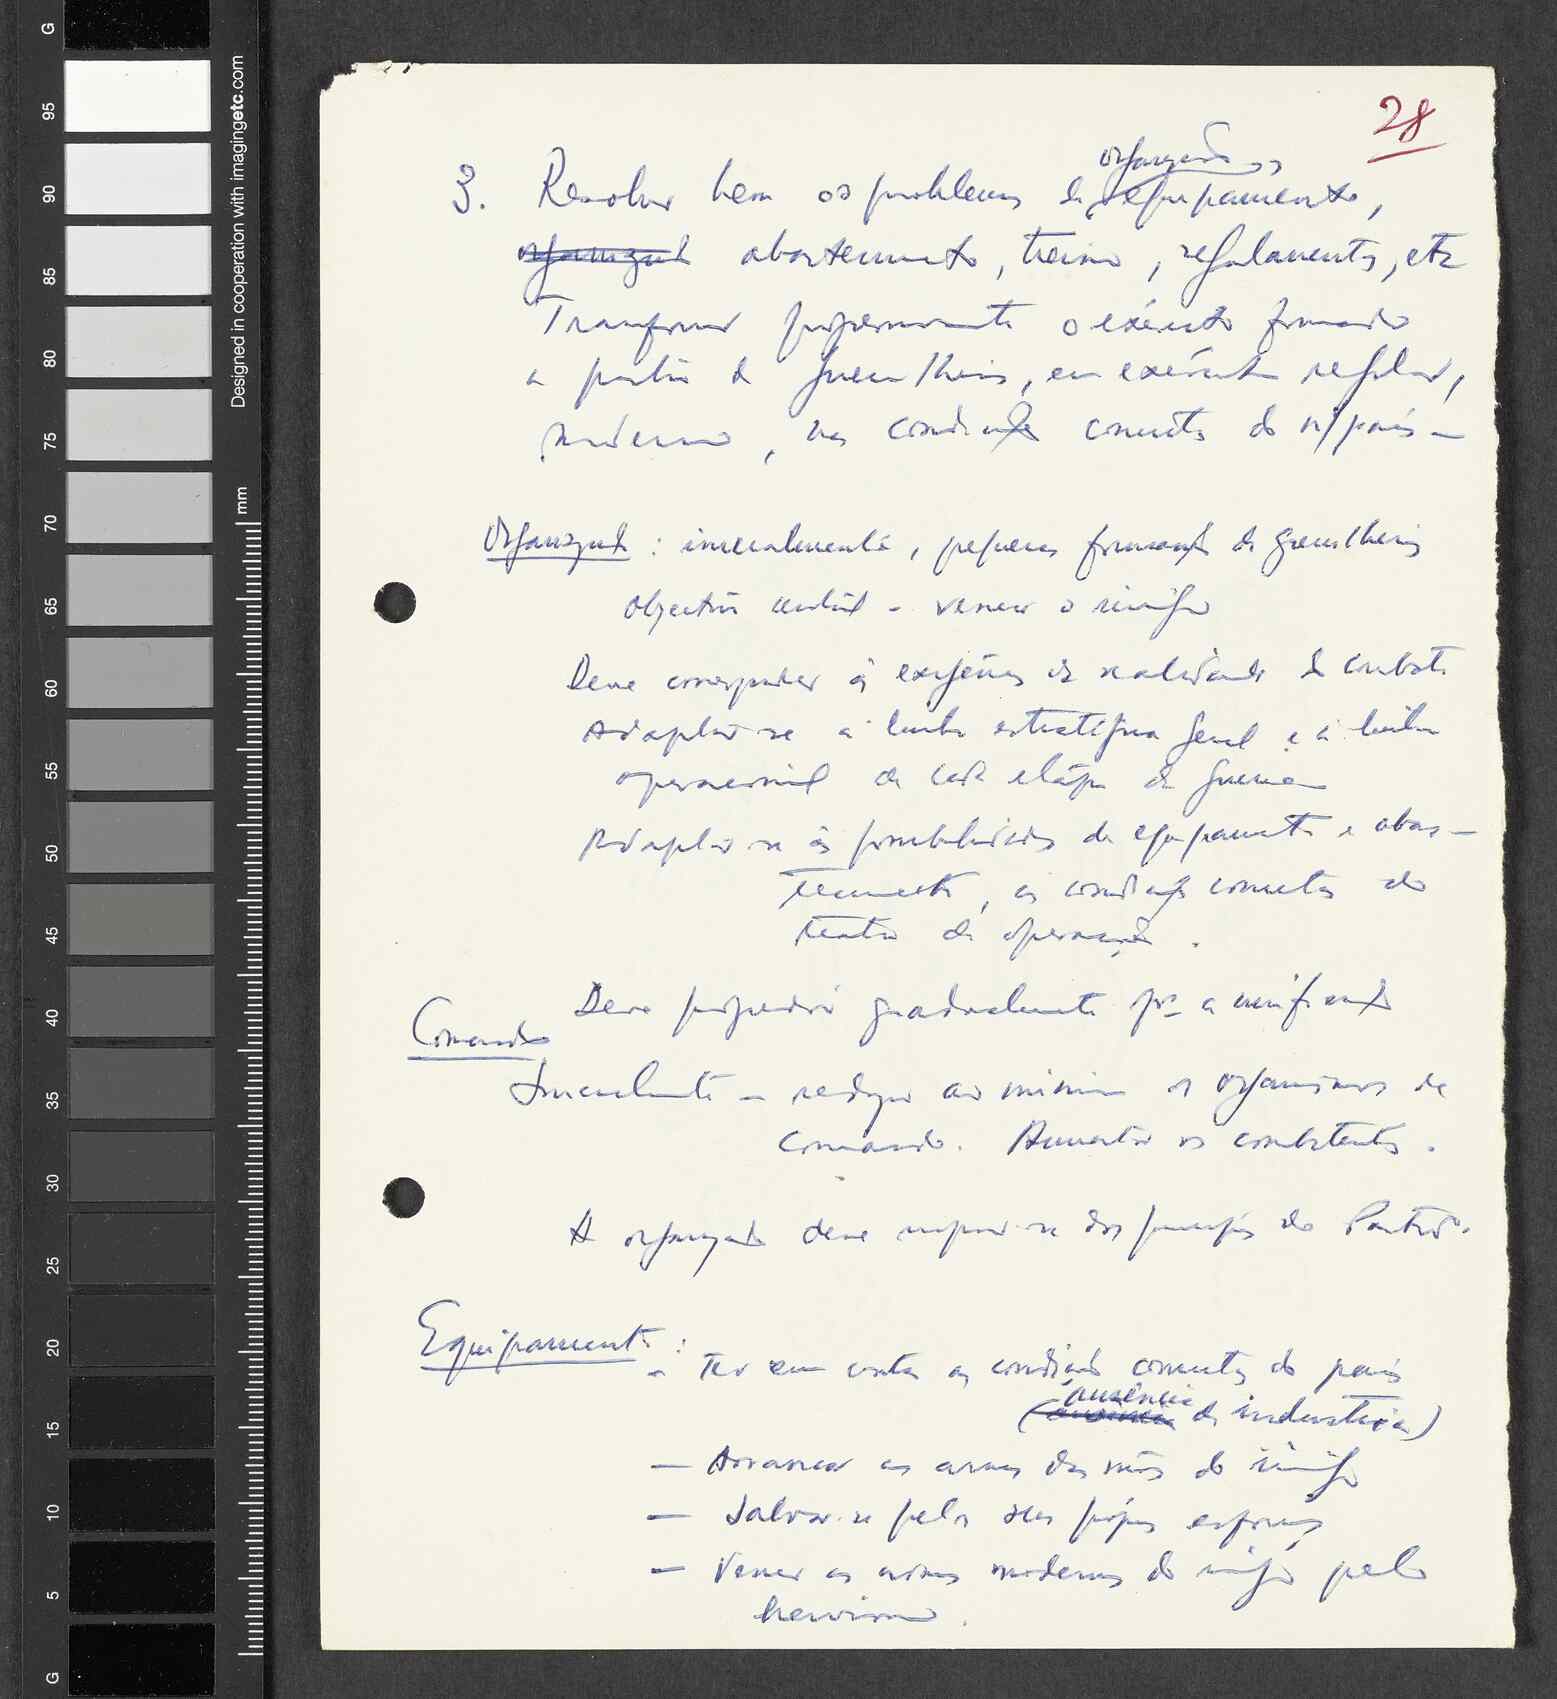 28
3. Resolver bem os problemas de organização, equipamento,
organização abastecimento, treino, regulamentos, etc
Transformar progressivamente o exército formado
a partir de guerrilheiros, em exército regular,
moderno, nas condições concretas do n/ país –
Organização : inicialmente, pequenas formações de guerrilheiros
Objectivo central - vencer o inimigo
Deve corresponder às exigências da realidade do combate
Adaptar-se à linha estratégica geral e à linha
operacional de cada etapa da guerra
Adaptar-se às possibilidades de equipamento e abas-
tecimento, às condições concretas do
teatro de operações.
Deve progredir gradualmente para a unificação
Comando
Inicialmente - reduzir ao mínimo os organismos de
comando. Aumentar os combatentes.
A organização deve inspirar-se dos princípios do Partido.
Equipamento :
- Ter em conta as condições concretas do país
(ausência de indústria)
— Arrancar as armas das mãos do inimigo
— Salvar-se pelos seus próprios esforços
— Vencer as armas modernas do inimigo pelo
heroísmo.
Designed in cooperation with imagingetc.com
mm
G
95
90
85
80
75
70
65
60
55
50
45
40
35
30
25
20
15
10
5
G